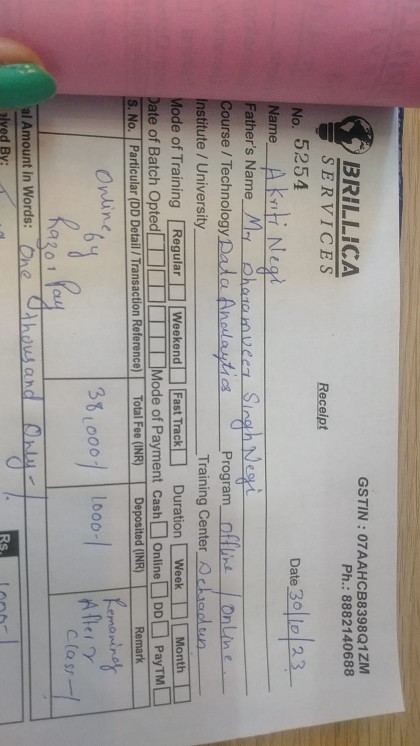 BRILLICA
SERVICES
GSTIN : 07AAHCB8398Q1ZM
Ph.: 8882140688
Receipt
No. 5254
Date 30/10/23
Name Akriti Negi
Father's Name Mr Dharamveer Singh Negi
Course / Technology Data Analaytics Program offline / online
Institute / University Training Center Dehradun
Mode of Training Regular Weekend Fast Track Duration Week Month
Date of Batch Opted Mode of Payment Cash Online DD PayTM
S. No. Particular (DD Detail / Transaction Reference) Total Fee (INR) Deposited (INR) Remark
Online by
Razor Pay
38,000/- 1000/-
Remaning
After
Class-/
al Amount in Words: One thousand Only-/.
Rs. 1000-/
ived By: